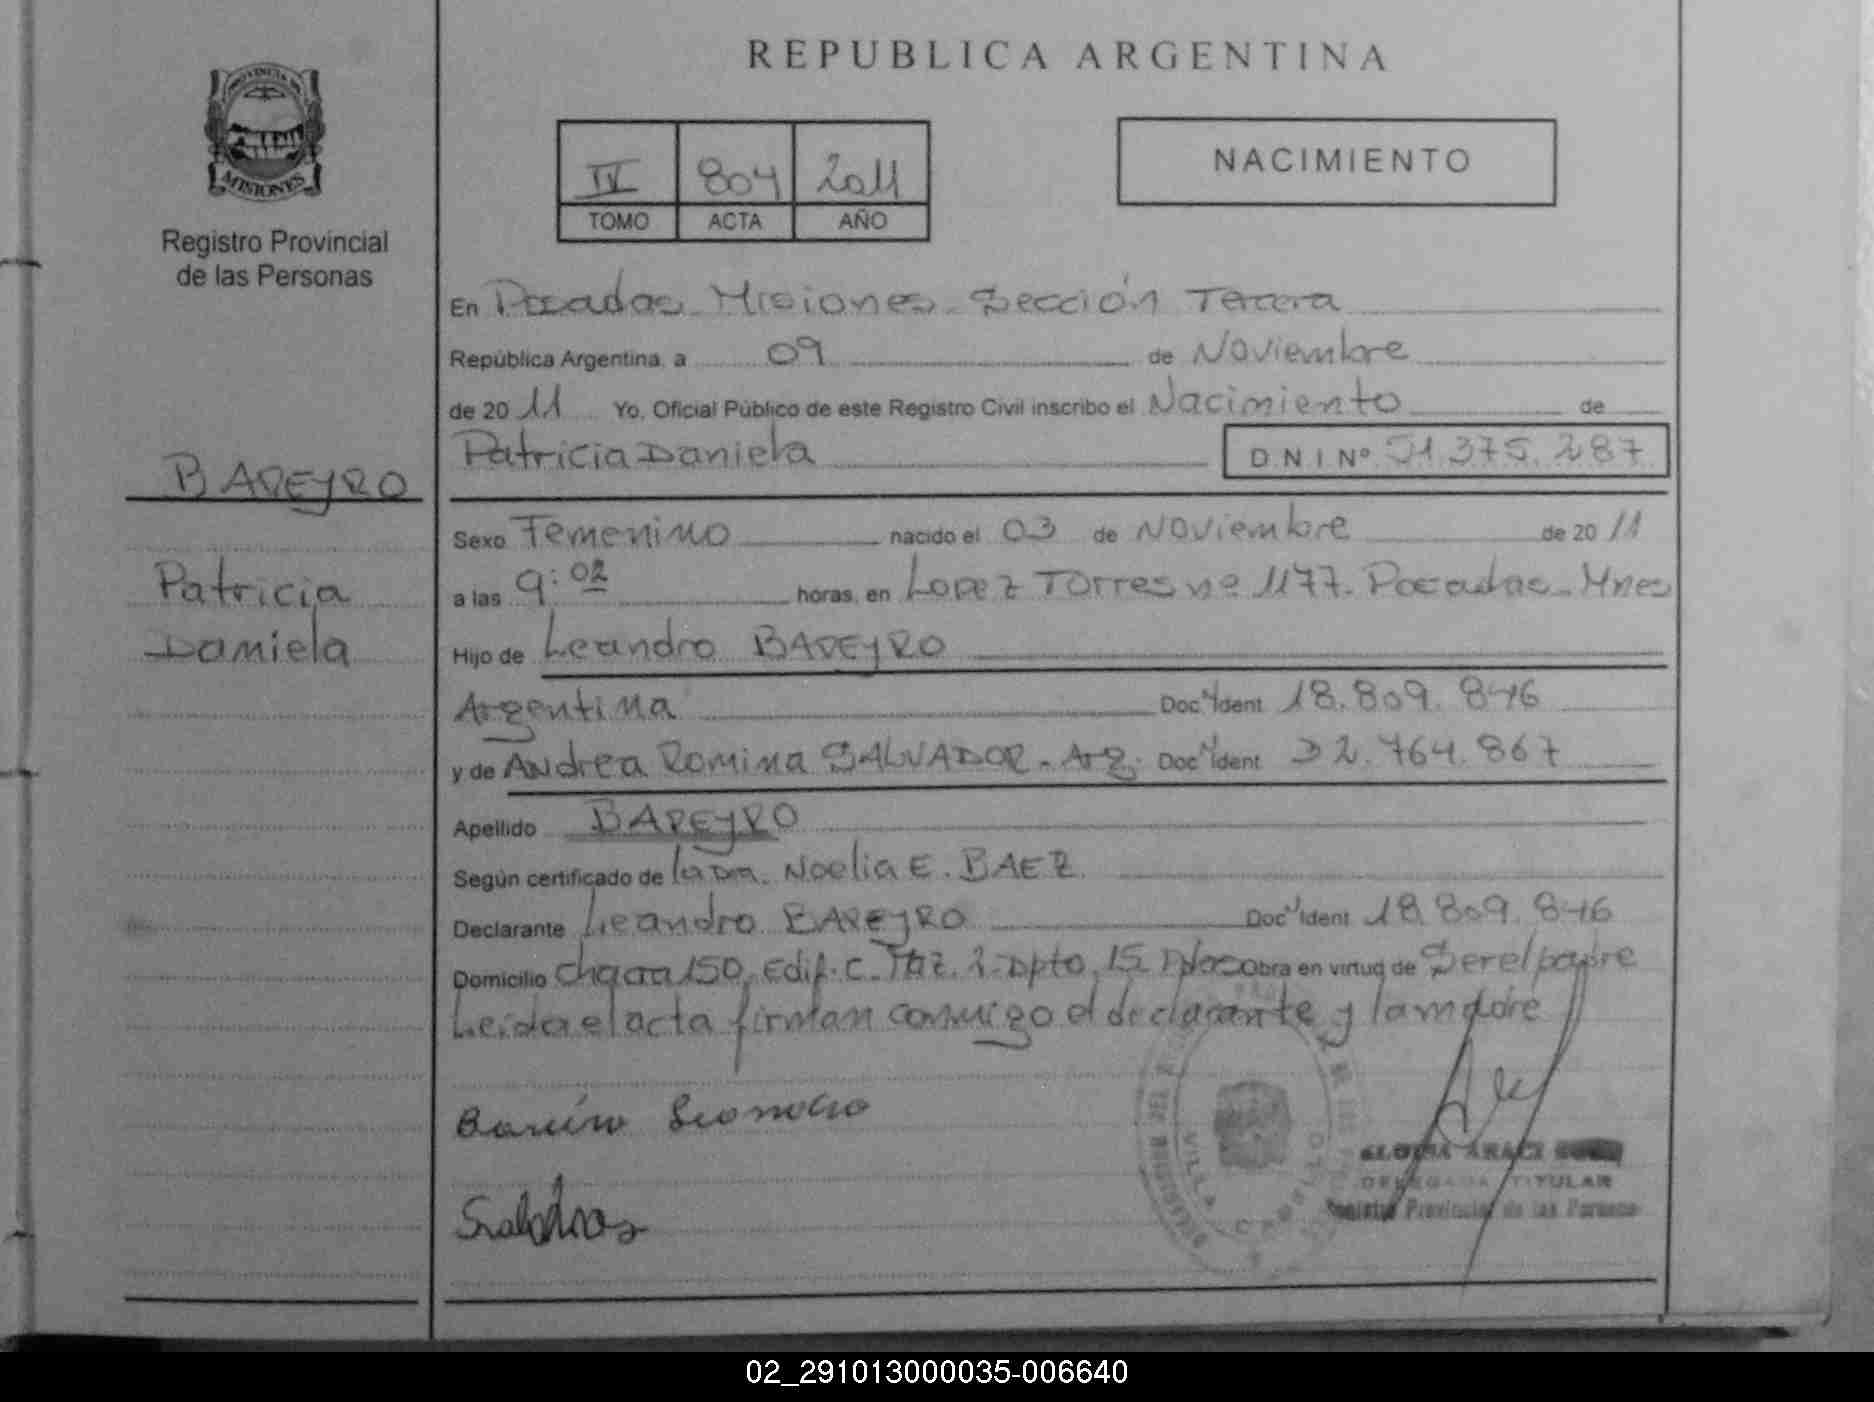 REPUBLICA ARGENTINA
PROVINCIA DE
MISIONES
Registro Provincial
de las Personas
IV 804 2011
TOMO ACTA AÑO
NACIMIENTO
En Posadas Misiones Sección Tercera
República Argentina, a 09 de Noviembre
de 20 11 Yo, Oficial Público de este Registro Civil inscribo el Nacimiento de
Patricia Daniela D.N.I Nº 51.375.287
BAREYRO
Patricia
Daniela
Sexo Femenino nacido el 03 de Noviembre de 20 11
a las 9:02 horas, en Lopez Torres nº 1177. Posadas - Mnes
Hijo de Leandro BAREYRO
Argentina Doc. Ident 18.809.846
y de Andrea Romina SALVADOR - Arg. Doc. Ident 32.764.867
Apellido BAREYRO
Según certificado de la Dra. Noelia E. BAEZ
Declarante Leandro BAREYRO Doc. Ident 18.809.846
Domicilio Chacra 150, Edif. C. 2. Dpto. 15 Obra en virtud de Ser el padre
Leida el acta firman conmigo el declarante y la madre
VILLA CABELLO
DELEGADA TITULAR
Registro Provincial de las Personas
02_291013000035-006640